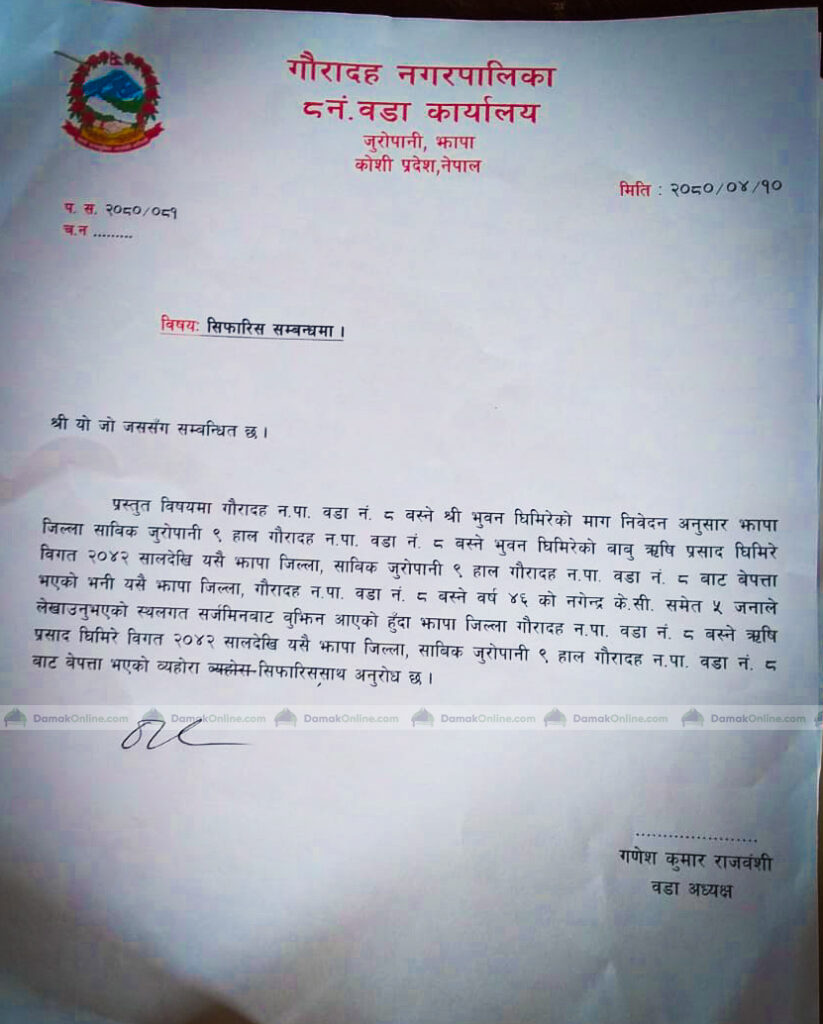 गौरादह नगरपालिका
८नं. वडा कार्यालय
जुरोपानी, झापा
कोशी प्रदेश,नेपाल
मिति : २०८०/०४/१०
प. स. २०८०/०८१
च.न .........
विषय: सिफारिस सम्बन्धमा ।
श्री यो जो जससँग सम्वन्धित छ ।
प्रस्तुत विषयमा गौरादह न.पा. वडा नं. ८ बस्ने श्री भुवन घिमिरेको माग निवेदन अनुसार झापा
जिल्ला साविक जुरोपानी ९ हाल गौरादह न.पा. वडा नं. ८ बस्ने भुवन घिमिरेको बाबु ऋषि प्रसाद घिमिरे
विगत २०४२ सालदेखि यसै झापा जिल्ला, साविक जुरोपानी ९ हाल गौरादह न.पा. वडा नं. ८ बाट बेपत्ता
भएको भनी यसै झापा जिल्ला, गौरादह न.पा. वडा नं. ८ बस्ने वर्ष ४६ को नगेन्द्र के.सी. समेत ५ जनाले
लेखाउनुभएको स्थलगत सर्जमिनबाट वुझिन आएको हुँदा झापा जिल्ला गौरादह न.पा. वडा नं. ८ बस्ने ऋषि
प्रसाद घिमिरे विगत २०४२ सालदेखि यसै झापा जिल्ला, साविक जुरोपानी ९ हाल गौरादह न.पा. वडा नं. ८
बाट बेपत्ता भएको व्यहोरा व्यहोरा सिफारिससाथ अनुरोध छ ।
DamakOnline.com DamakOnline.com DamakOnline.com DamakOnline.com DamakOnline.com DamakOnline.com
......................
गणेश कुमार राजवंशी
वडा अध्यक्ष